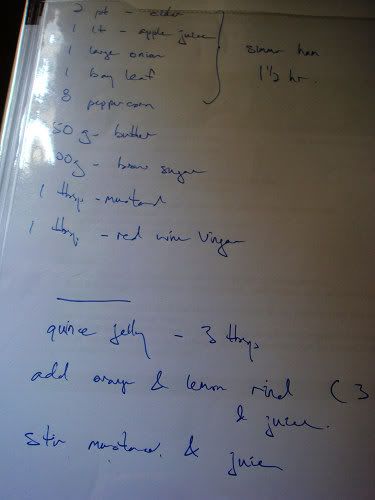 2 pt - cider
1 lt - apple juice
1 large onion
1 bay leaf
8 peppercorn
simmer ham
1 1/2 hr.
50 g - butter
00g - brown sugar
1 tbsp - mustard
1 tbsp - red wine vinegar
quince jelly - 3 tbsps
add orange & lemon rind (3
& juice.
stir mustard & juice